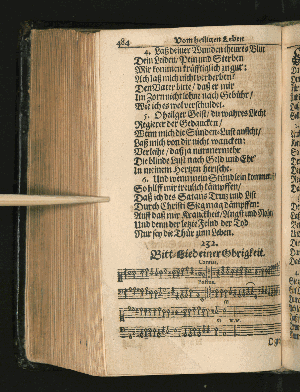 484 Vom heiligen Leben
4. Laß deiner Wunden theures Blut
Dein Leiden/ Pein und Sterben
Mir kommen kräfftiglich zu gut:
Ach laß mich nicht verderben!
Den Vater bitte/ daß er mir
Im Zorn nicht lohne nach Gebühr/
Wie ich es wol verschuldet.
5. O heilger Geist/ du wahres Liecht
Regierer der Gedancken/
Wenn mich die Sünden-Lust anficht/
Laß mich von dir nicht wancken:
Verleihe/ daß ja nimmermehr
Die blinde Lust nach Geld und Ehr'
In meinem Hertzen herrsche.
6. Und wenn mein Stündlein kommen
So hilff mir treulich kämpffen/
Daß ich des Satans Trutz und List
Durch Christi Sieg mag dämpffen:
Auff daß mir Kranckheit/ Angst und Noht,
Und denn der letzte Feind der Tod
Nur sey die Thür zum Leben.
232.
Bitt-Lied einer Obrigkeit.
Cantus.
Bassus.